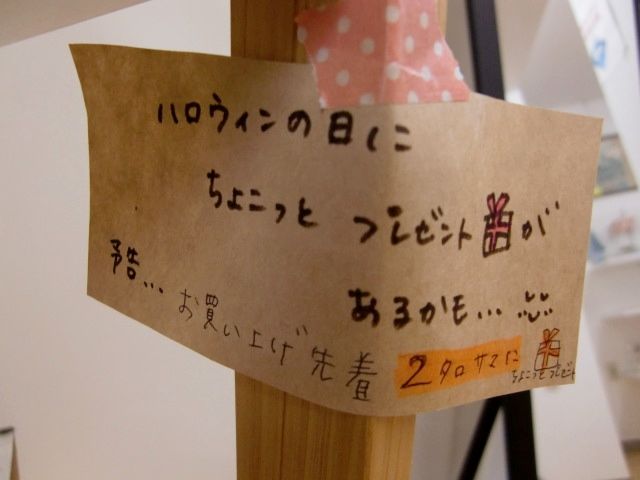 ハロウィンの日に
ちょこっと プレゼントが
あるかも...
予告...
お買い上げ 先着 2名サマに
ちょこっとプレゼント